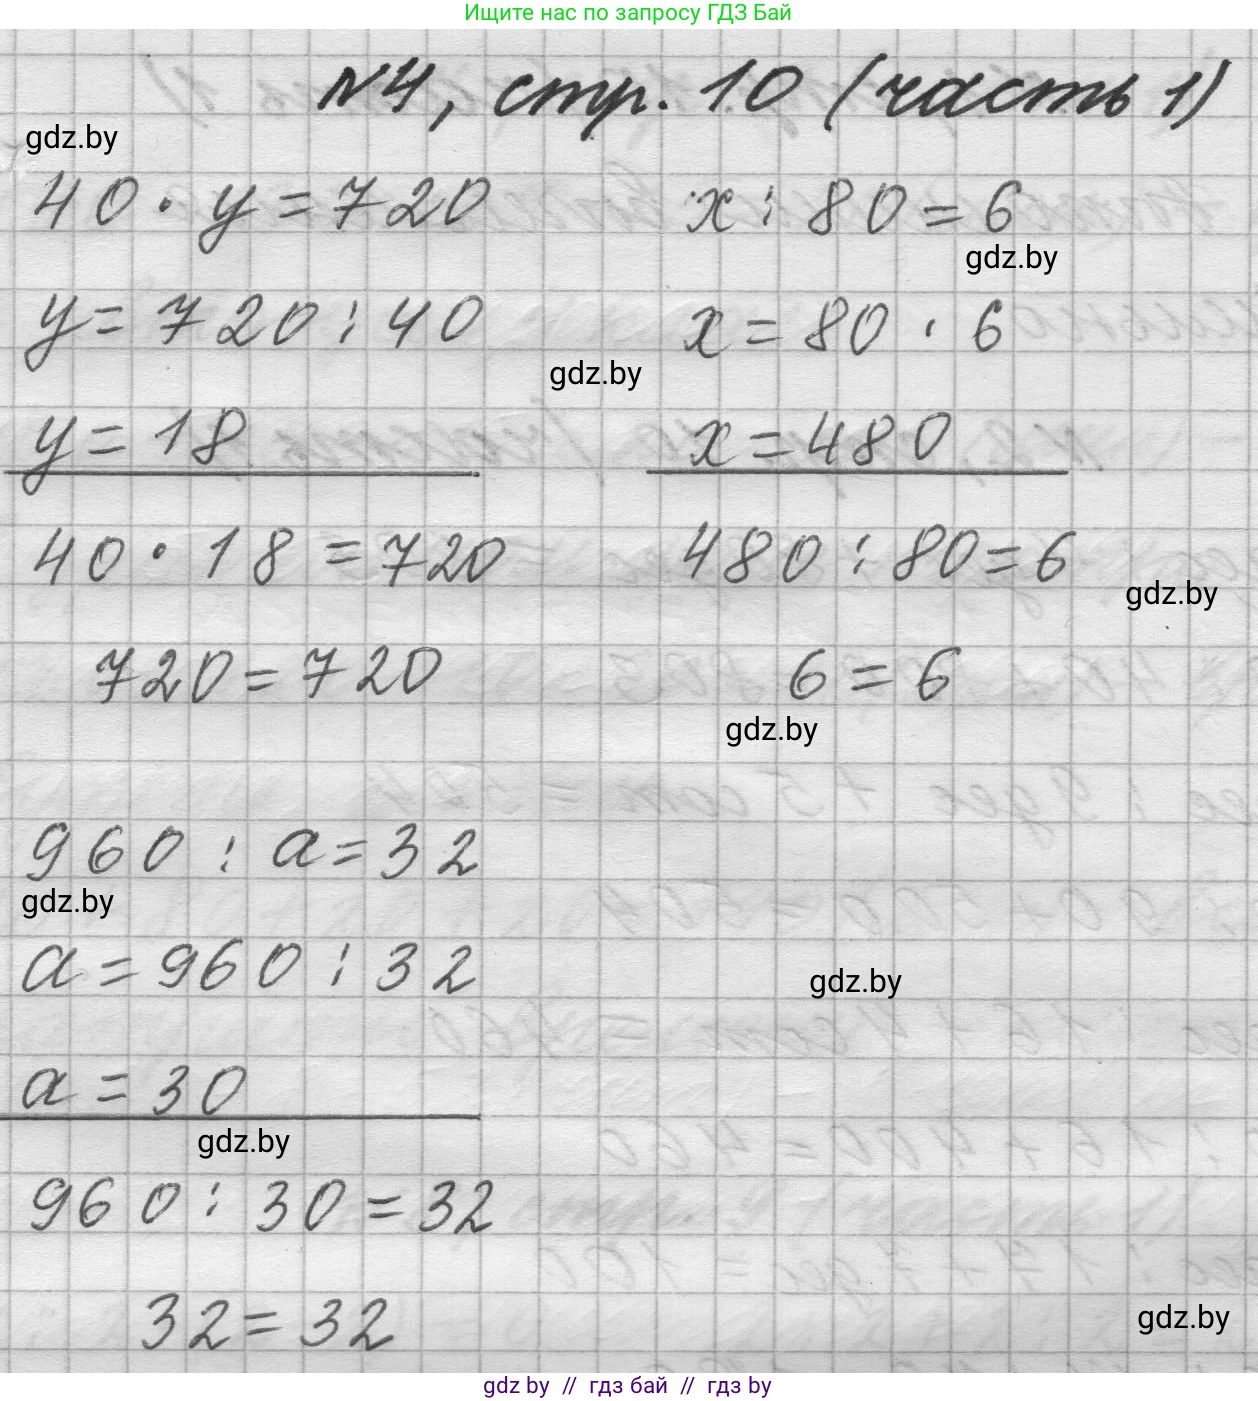 Ищите нас по запросу ГДЗ Бай
№4, стр. 10 (часть 1)
gdz.by
40 · y = 720
x : 80 = 6
gdz.by
y = 720 : 40
x = 80 · 6
gdz.by
y = 18
x = 480
40 · 18 = 720
480 : 80 = 6
gdz.by
720 = 720
6 = 6
gdz.by
960 : a = 32
gdz.by
a = 960 : 32
gdz.by
a = 30
gdz.by
960 : 30 = 32
32 = 32
gdz.by
gdz by // гдз бай // гдз by